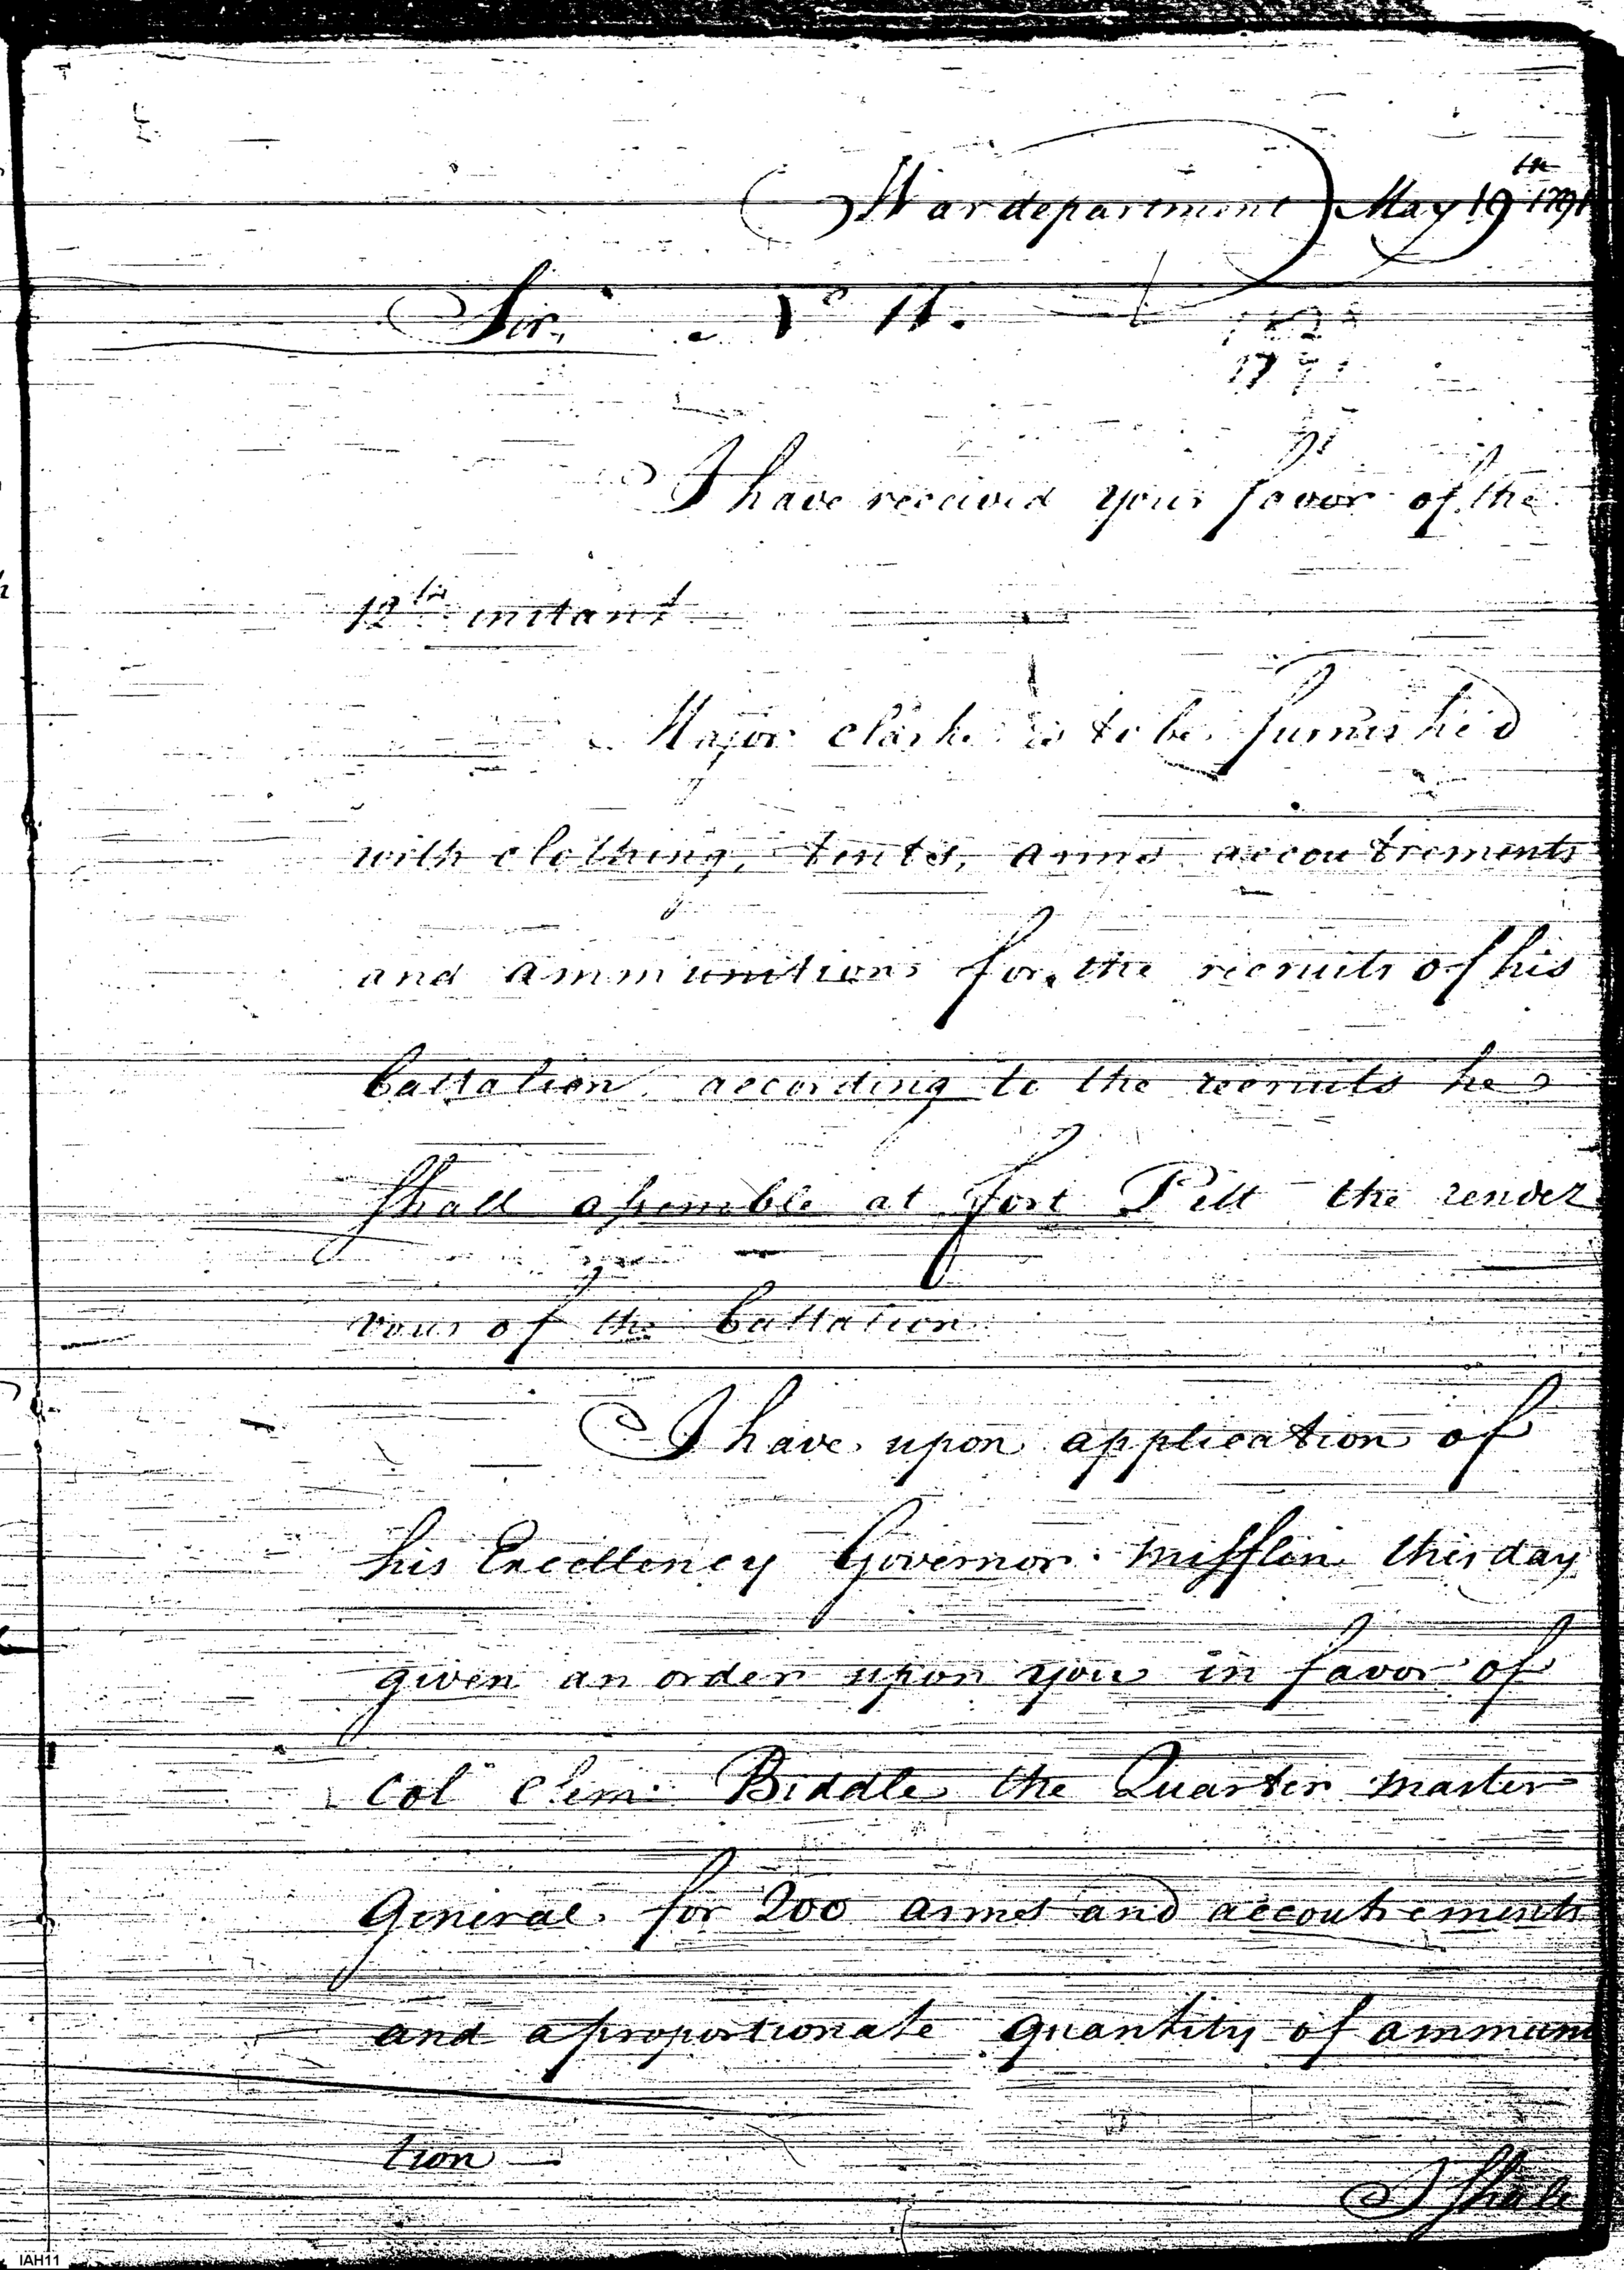 War department May 19th 1791
Sir, No 11.
1791
I have received your favor of the
12th instant
Major Clarke is to be furnished
with clothing, tents, arms accoutrements
and ammunition for the recruits of his
battalion according to the recruits he
shall assemble at fort Pitt the rendez
vous of the battalion
I have upon application of
his Excellency Governor Mifflin this day
given an order upon you in favor of
Col Clem: Biddle the Quarter master
General for 200 arms and accoutrements
and a proportionate quantity of ammuni
tion
I shall
IAH11